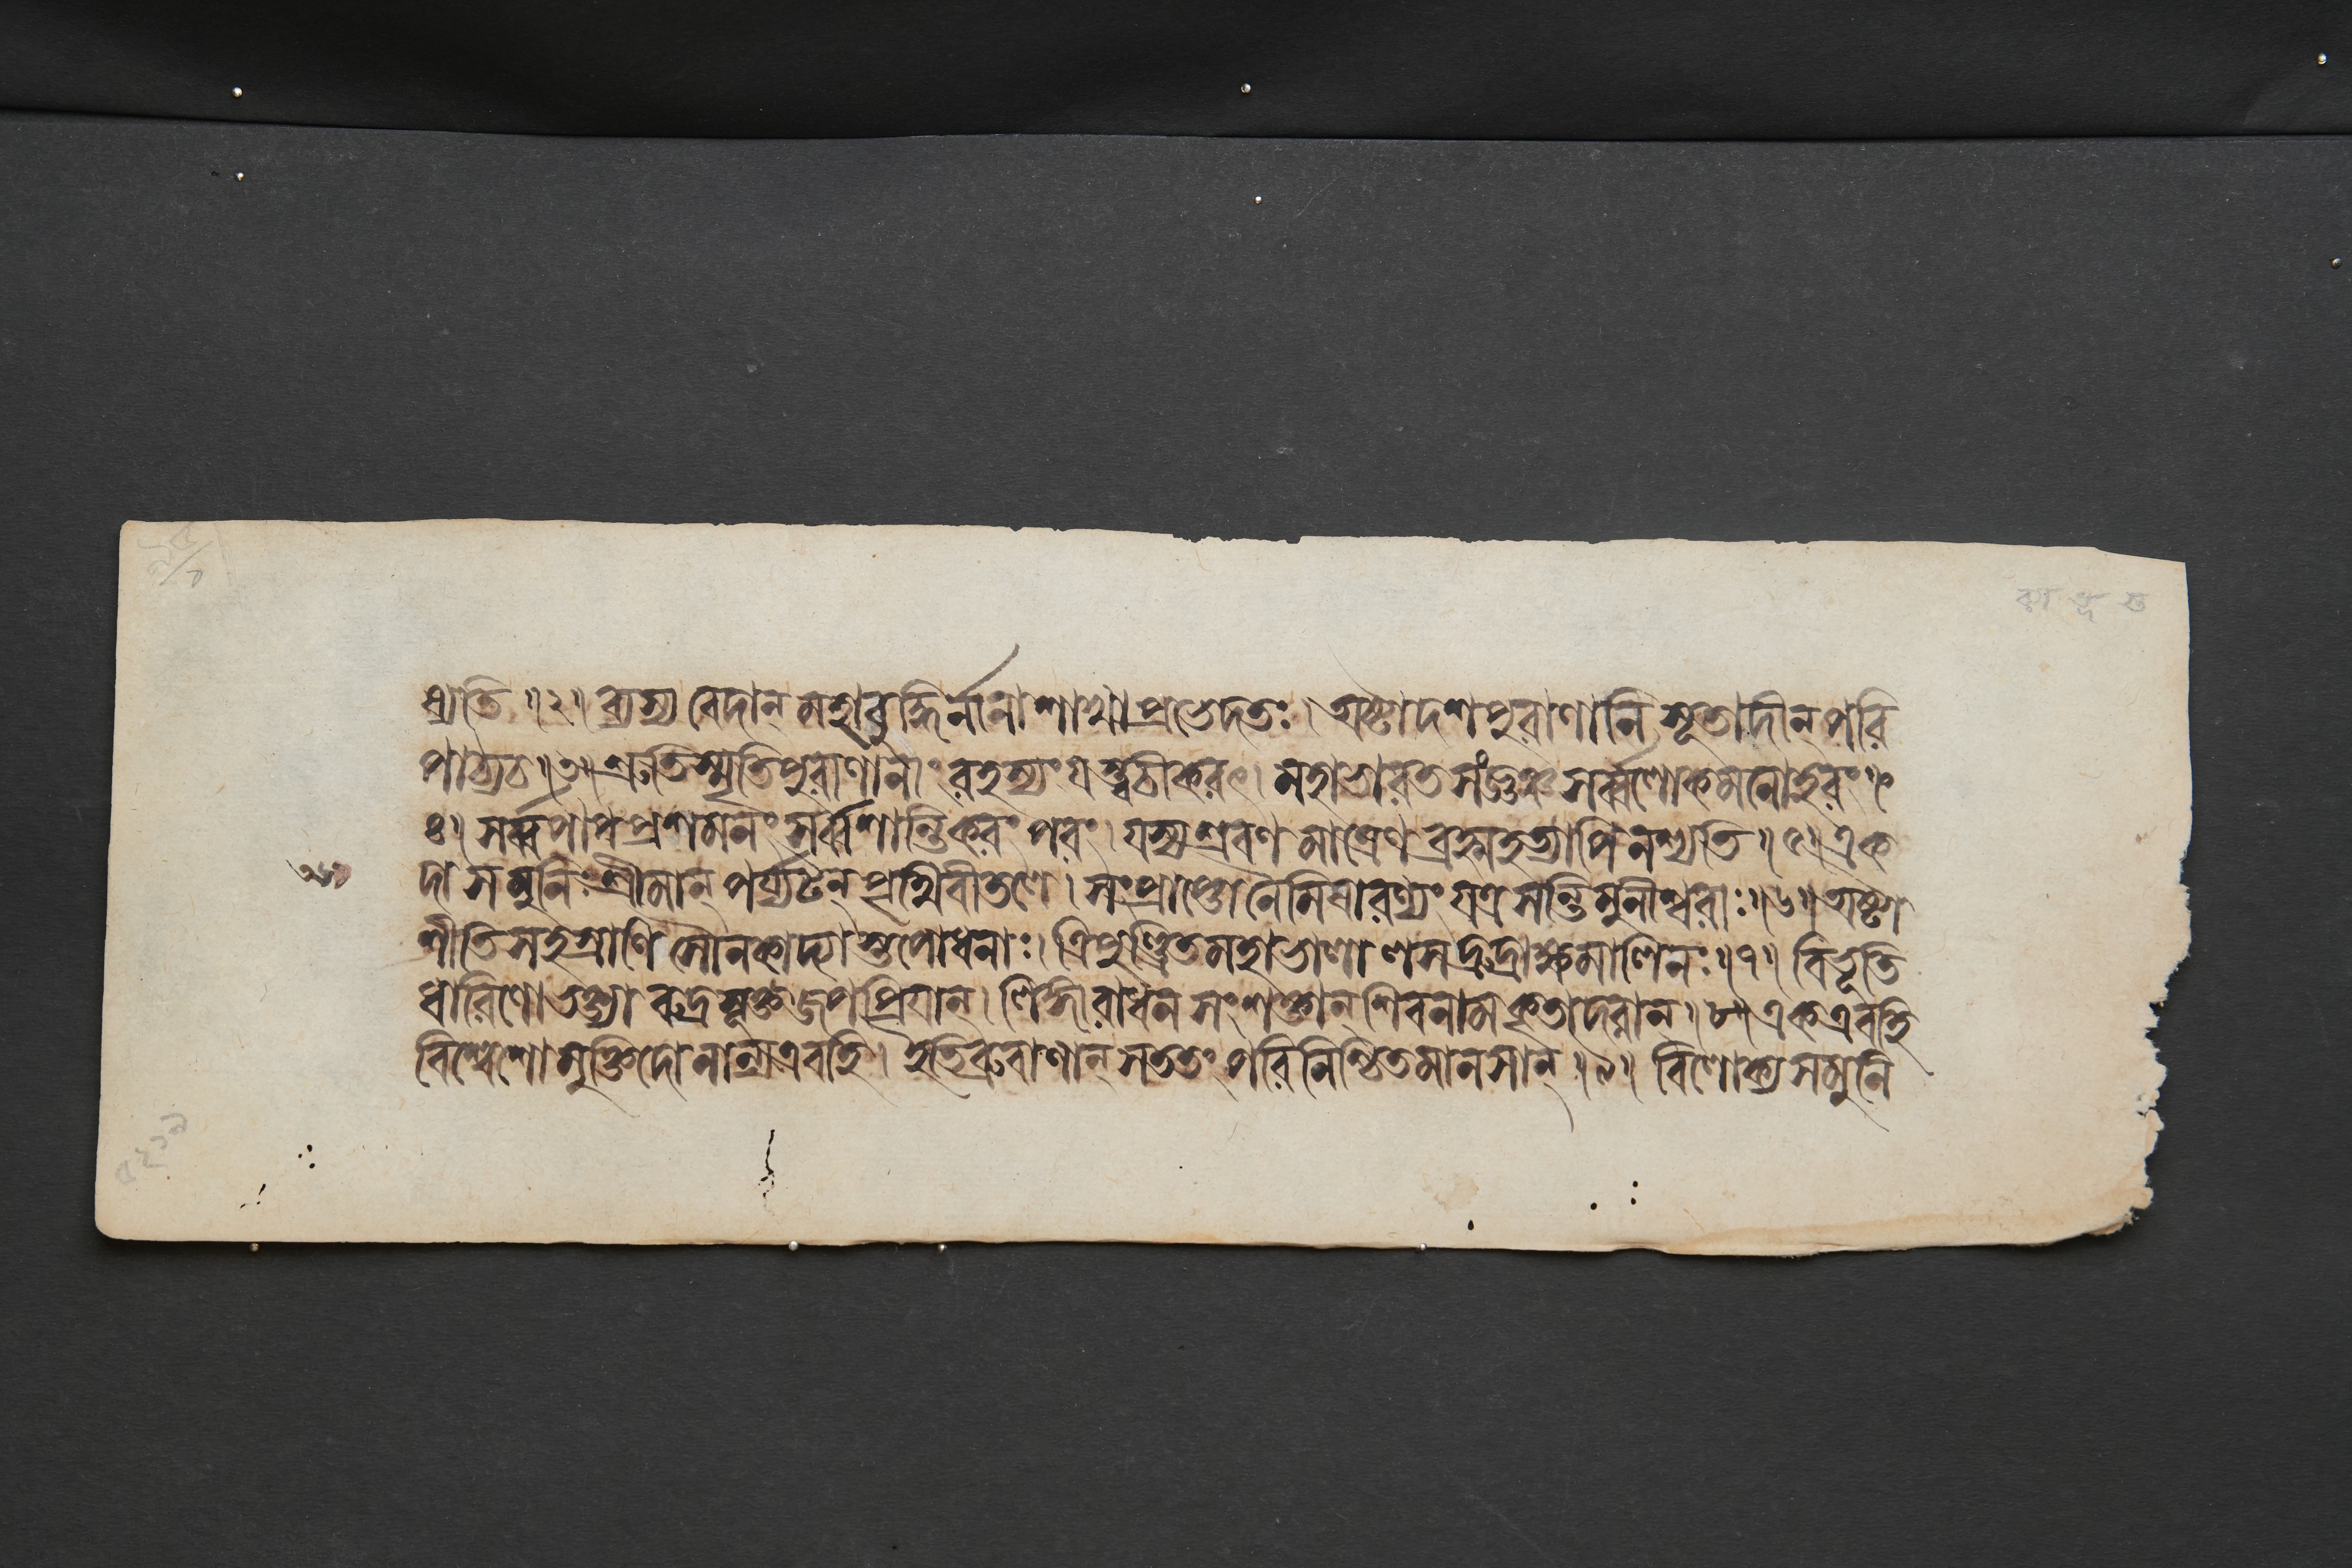 ষ্যতি ॥২॥ ব্যস্য বেদান্ মহাবুদ্ধির্নানাশাখাপ্রভেদতঃ। অষ্টাদশপুরাণানি সূতাদীন্ পরি
পাঠ্যচ ॥৩॥ শ্রুতিস্মৃতিপুরাণানাং রহস্যং যস্ত্বচীকরৎ। মহাভারতসংজ্ঞঞ্চ সর্ব্বলোকমনোহরং॥
৪॥ সর্ব্বপাপপ্রশমনং সর্ব্বশান্তিকরং পরং। যস্য শ্রবণমাত্রেণ ব্রহ্মহত্যাপি নশ্যতি ॥৫॥ এক
দা স মুনিঃ শ্রীমান্ পর্য্যটন্ পৃথিবীতলে। সংপ্রাপ্তো নৈমিষারণ্যং যত্র সন্তি মুনীশ্বরাঃ ॥৬॥ অষ্টা
শীতিসহস্রাণি সৌনকাদ্যাস্তপোধনাঃ। ত্রিপুণ্ড্রিতমহাভালা লসদ্রুদ্রাক্ষমালিনঃ ॥৭॥ বিভূতি
ধারিণো ভক্ত্যা রুদ্রসূক্তজপপ্রিয়ান্। লিঙ্গারাধনসংশক্তান্ শিবনামকৃতাদরান্ ॥৮॥ এক এব হি
বিশ্বেশো মুক্তিদো নান্য এব হি। ইতি ব্রুবাণান্ সততং পরিনিষ্ঠিতমানসান্ ॥৯॥ বিলোক্য স মুনি